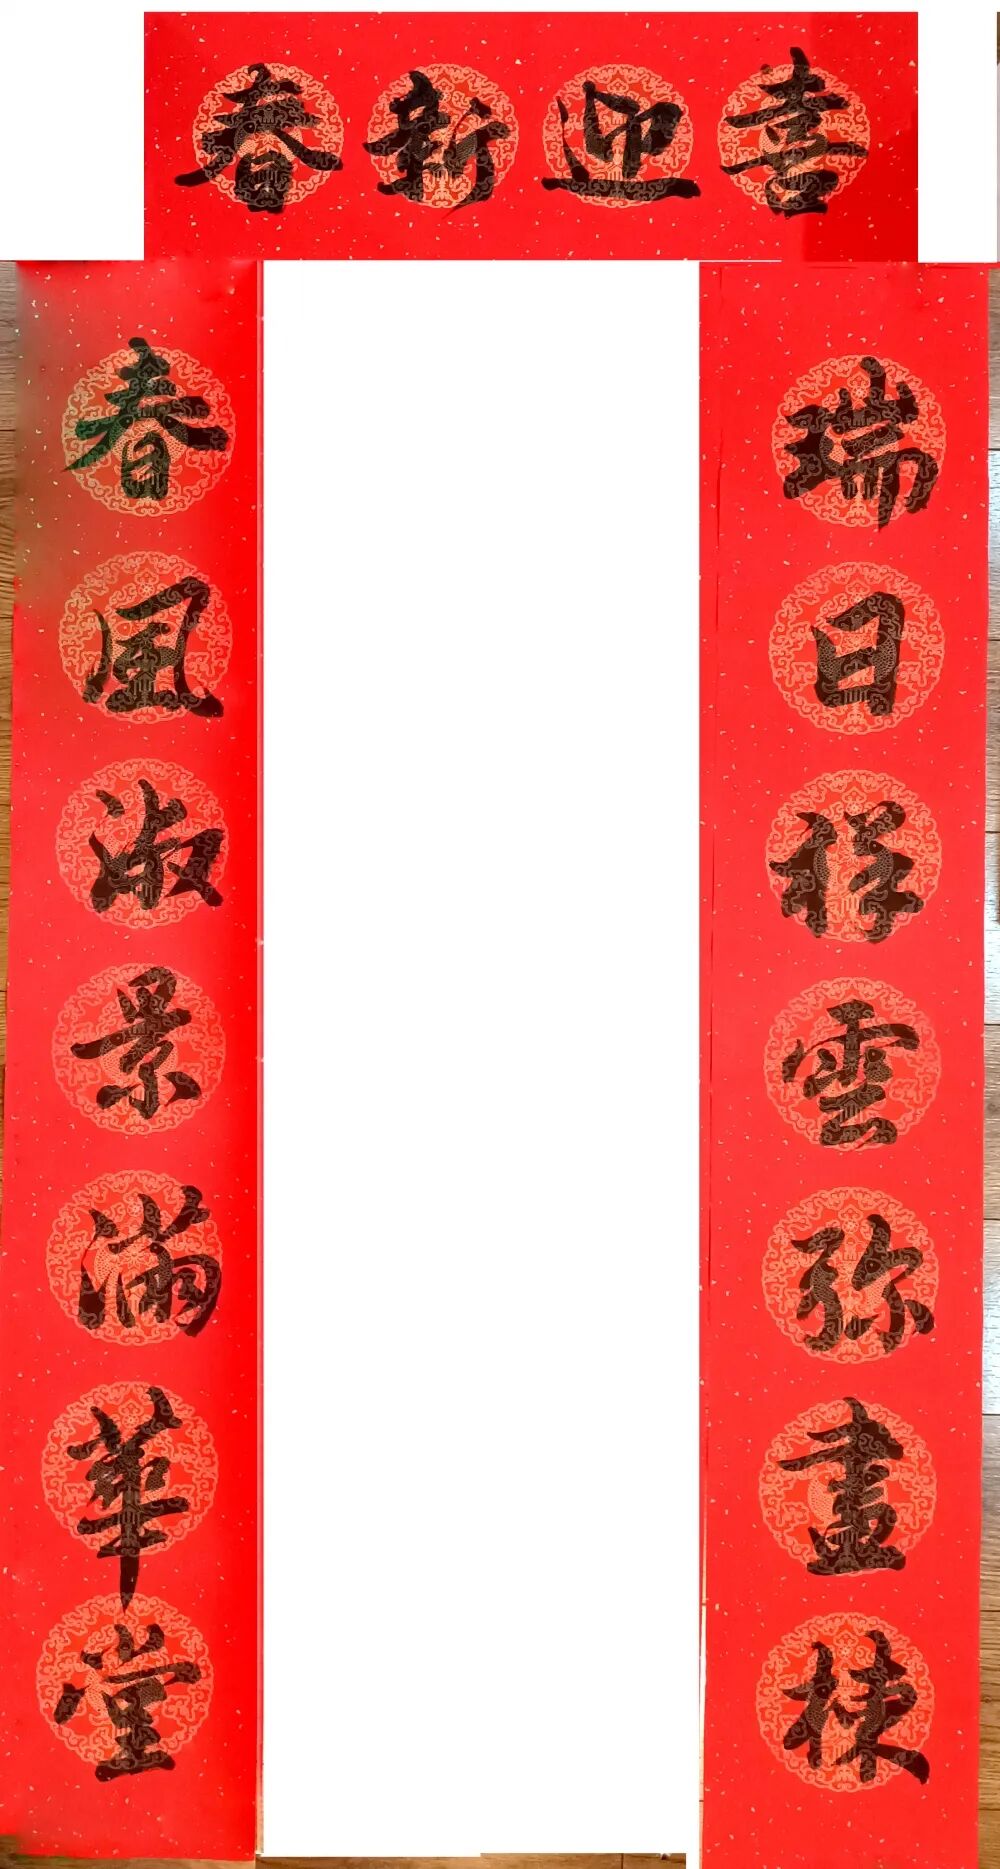 喜迎新春
瑞日祥雲弥畫棟
春風淑景滿華堂